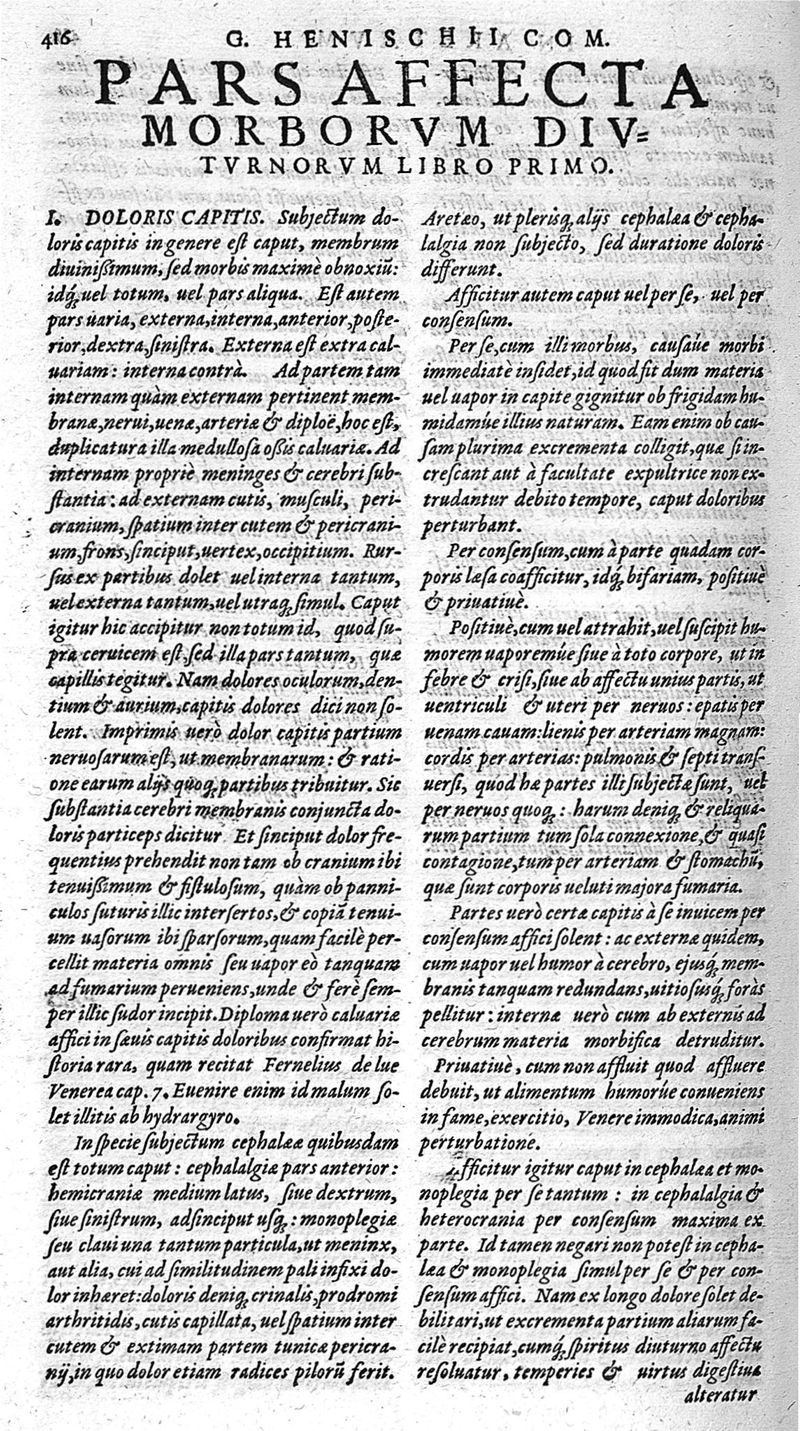 416
G. HENISCHII COM.
PARS AFFECTA
MORBORVM DIV=
TVRNORVM LIBRO PRIMO.
I. DOLORIS CAPITIS. Subjectum do-
loris capitis in genere est caput, membrum
diuinißimum, sed morbis maximè obnoxiũ:
idq́; uel totum, uel pars aliqua. Est autem
pars uaria, externa, interna, anterior, poste-
rior, dextra, sinistra. Externa est extra cal-
uariam: interna contrà. Ad partem tam
internam quàm externam pertinent mem-
branæ, nerui, uenæ, arteriæ & diploë, hoc est,
duplicatura illa medullosa oßis caluariæ. Ad
internam propriè meninges & cerebri sub-
stantia: ad externam cutis, musculi, peri-
cranium, spatium inter cutem & pericrani-
um, frons, sinciput, uertex, occipitium. Rur-
sus ex partibus dolet uel interna tantum,
uel externa tantum, uel utraq; simul. Caput
igitur hic accipitur non totum id, quod su-
pra ceruicem est, sed illa pars tantum, quæ
capillis tegitur. Nam dolores oculorum, den-
tium & aurium, capitis dolores dici non so-
lent. Imprimis uerò dolor capitis partium
neruosarum est, ut membranarum: & rati-
one earum alijs quoq; partibus tribuitur. Sic
substantia cerebri membranis conjuncta do-
loris particeps dicitur. Et sinciput dolor fre-
quentius prehendit non tam ob cranium ibi
tenuißimum & fistulosum, quàm ob panni-
culos suturis illic intersertos, & copiã tenui-
um uasorum ibi sparsorum, quam facilè per-
cellit materia omnis seu uapor eò tanquam
ad fumarium perueniens, unde & ferè sem-
per illic sudor incipit. Diploma uerò caluariæ
affici in sæuis capitis doloribus confirmat hi-
storia rara, quam recitat Fernelius de lue
Venerea cap. 7. Euenire enim id malum so-
let illitis ab hydrargyro.
In specie subjectum cephalææ quibusdam
est totum caput: cephalalgiæ pars anterior:
hemicraniæ medium latus, siue dextrum,
siue sinistrum, ad sinciput usq;: monoplegiæ
seu claui una tantum particula, ut meninx,
aut alia, cui ad similitudinem pali infixi do-
lor inhæret: doloris deniq; crinalis, prodromi
arthritidis, cutis capillata, uel spatium inter
cutem & extimam partem tunicæ pericra-
nij, in quo dolor etiam radices pilorũ ferit.
Aretæo, ut plerisq; alijs cephalæa & cepha-
lalgia non subjecto, sed duratione doloris
differunt.
Afficitur autem caput uel per se, uel per
consensum.
Per se, cum illi morbus, causáue morbi
immediatè insidet, id quod fit dum materia
uel uapor in capite gignitur ob frigidam hu-
midamúe illius naturam. Eam enim ob cau-
sam plurima excrementa colligit, quæ si in-
crescant aut à facultate expultrice non ex-
trudantur debito tempore, caput doloribus
perturbant.
Per consensum, cum à parte quadam cor-
poris læsa coafficitur, idq́; bifariam, positiuè
& priuatiuè.
Positiuè, cum uel attrahit, uel suscipit hu-
morem uaporemúe siue à toto corpore, ut in
febre & crisi, siue ab affectu unius partis, ut
uentriculi & uteri per neruos: epatis per
uenam cauam: lienis per arteriam magnam:
cordis per arterias: pulmonis & septi trans-
uersi, quod hæ partes illi subjectæ sunt, uel
per neruos quoq;: harum deniq; & reliqua-
rum partium tum sola connexione, & quasi
contagione, tum per arteriam & stomachũ,
quæ sunt corporis ueluti majora fumaria.
Partes uerò certæ capitis à se inuicem per
consensum affici solent: ac externæ quidem,
cum uapor uel humor à cerebro, ejusq́; mem-
branis tanquam redundans, uitiosusq́; foràs
pellitur: internæ uerò cum ab externis ad
cerebrum materia morbifica detruditur.
Priuatiuè, cum non affluit quod affluere
debuit, ut alimentum humorúe conueniens
in fame, exercitio, Venere immodica, animi
perturbatione.
Afficitur igitur caput in cephalæa et mo-
noplegia per se tantum: in cephalalgia &
heterocrania per consensum maxima ex
parte. Id tamen negari non potest in cepha-
læa & monoplegia simul per se & per con-
sensum affici. Nam ex longo dolore solet de-
bilitari, ut excrementa partium aliarum fa-
cilè recipiat, cumq́; spiritus diuturno affectu
resoluatur, temperies & uirtus digestiua
alteratur